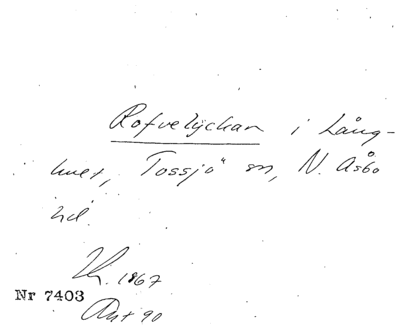 Rofvelyckan i Lång-
hult, Tossjö sn, N. Åsbo
hd.
1867
Nr 7403
90